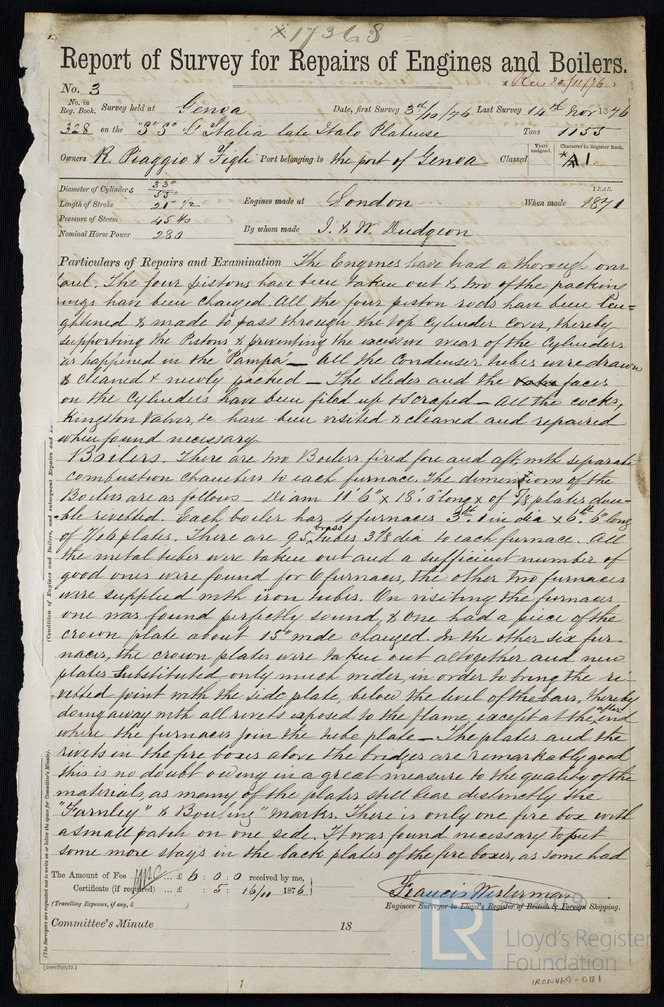 × 17368
Report of Survey for Repairs of Engines and Boilers.
(Rec 22/11/76)
No. 3
No. in Reg. Book. Survey held at Genoa Date, first Survey 3rd/10/76 Last Survey 14th Nov 1876
328 on the "SS" L'Italia late Italo Plateuse Tons 1155
Owners R. Piaggio & Figli Port belonging to the port of Genoa Classed Years assigned. Character in Register Book. *A1
Diameter of Cylinders 33" 55
Length of Stroke 21" 1/2
Pressure of Steam 45 lbs
Nominal Horse Power 280
Engines made at London When made YEAR. 1871
By whom made J. & W. Dudgeon
Particulars of Repairs and Examination The Engines have had a thorough over
haul. The four pistons have been taken out & two of the packing
rings have been changed. All the four piston rods have been len=
gthened & made to pass through the top Cylinder cover, thereby
supporting the Pistons & preventing the excessive wear of the Cylinders
as happened in the "Pampa" — All the Condenser tubes were drawn
& cleaned & newly packed — The slides and the faces
on the Cylinders have been filed up & scraped — All the cocks,
Kingston Valves, &c have been visited & cleaned and repaired
when found necessary
Boilers. There are two Boilers fired fore and aft, with separate
combustion chambers to each furnace. The dimensions of the
Boilers are as follows — Diam 11' 6" x 18' 6" long x of 7/8 plates dou=
=ble rivetted. Each boiler has 4 furnaces 3ft 1 in dia x 6ft 6" long
of 7/16 plates. There are 95 brass tubes 3 3/8 dia to each furnace. All
the metal tubes were taken out and a sufficient number of
good ones were found for 6 furnaces, the other two furnaces
were supplied with iron tubes. On visiting the furnaces
one was found perfectly sound, & one had a piece of the
crown plate about 15" wide changed. In the other six fur-
naces, the crown plates were taken out altogether and new
plates substituted only much wider, in order to bring the ri-
-vetted joint with the side plate, below the level of the bars, thereby
doing away with all rivets exposed to the flame, except at the after end
where the furnaces join the tube plate — The plates and the
rivets in the fire boxes above the bridges are remarkably good
this is no doubt owing in a great measure to the quality of the
materials, as many of the plates still bear distinctly the
"Farnley" & "Bowling" marks. There is only one fire box with
a small patch on one side. It was found necessary to put
some more stays in the back plates of the fire boxes, as some had
The Amount of Fee ... £ 6 : 0 : 0 received by me,
Certificate (if required) ... £ : 5. 16/11 1876
(Travelling Expenses, if any, £ )
Francis Westerman
Engineer Surveyor to Lloyd's Register of British & Foreign Shipping.
Committee's Minute 18
LR Lloyd's Register
Foundation
IRON469-0111